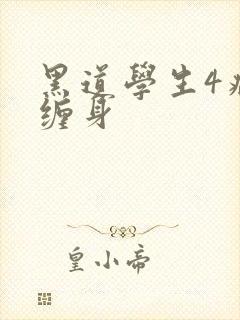 黑道學生4
缠身
皇小帝